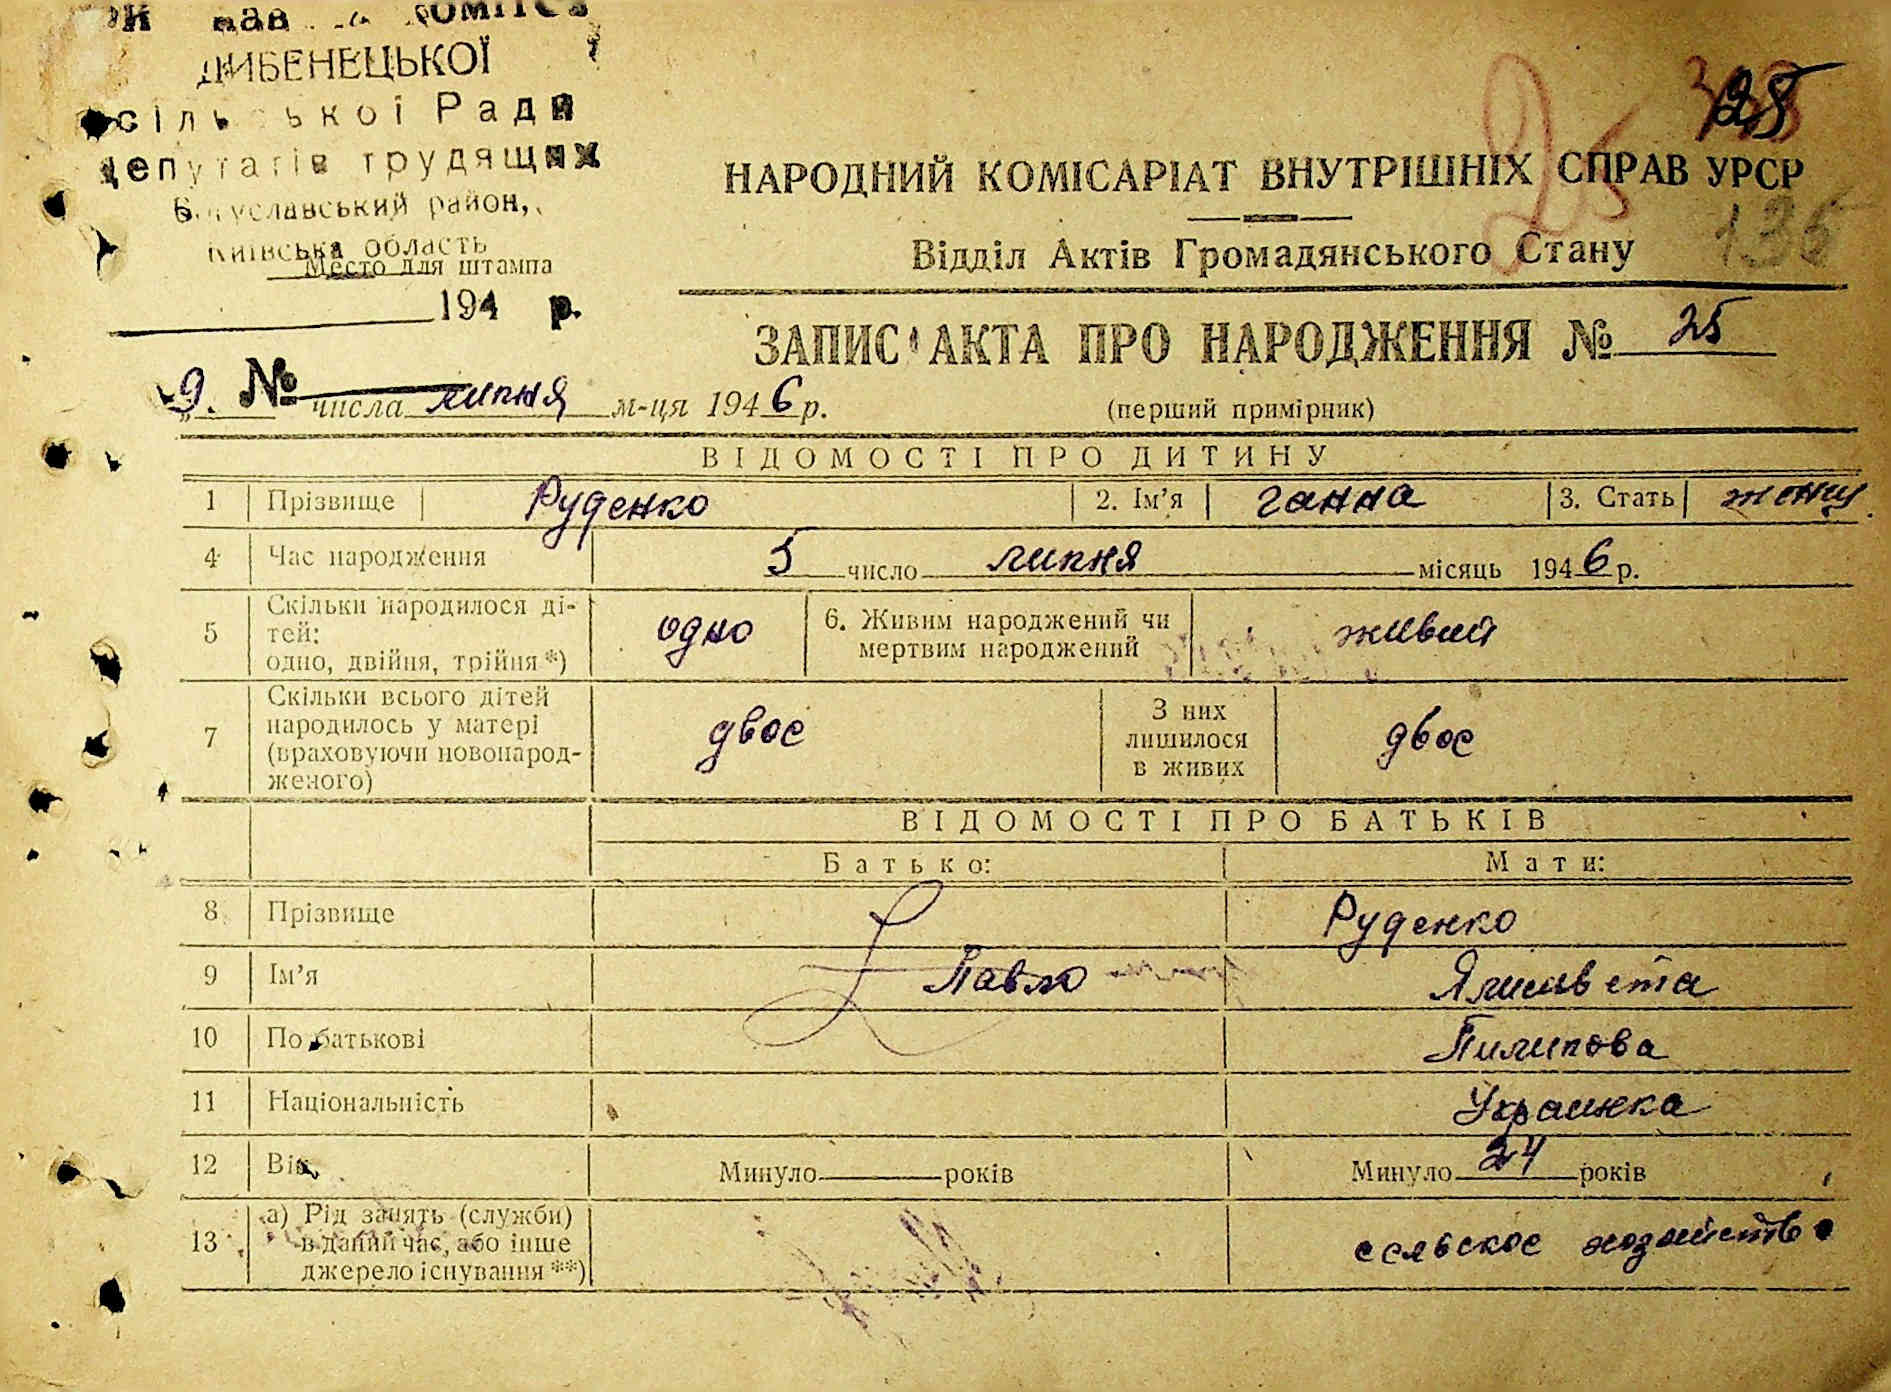 ДИБЕНЕЦЬКОЇ
сільської Ради
депутатів трудящих
Богуславський район,
Київська область
Место для штампа
194 р.
№
25
25
135
НАРОДНИЙ КОМІСАРІАТ ВНУТРІШНІХ СПРАВ УРСР
Відділ Актів Громадянського Стану
ЗАПИС АКТА ПРО НАРОДЖЕННЯ № 25
„9. числа липня м-ця 1946 р.
(перший примірник)
ВІДОМОСТІ ПРО ДИТИНУ
1 Прізвище Руденко 2. Ім’я Ганна 3. Стать женщ.
4 Час народження 5 число липня місяць 1946 р.
5 Скільки народилося ді-
тей:
одно, двійня, трійня *) одно
6. Живим народжений чи
мертвим народжений живий
7 Скільки всього дітей
народилось у матері
(враховуючи новонарод-
женого) двое
З них
лишилося
в живих двое
ВІДОМОСТІ ПРО БАТЬКІВ
Батько: Мати:
8 Прізвище Руденко
9 Ім’я Павло Ялисавета
10 По батькові Пилипова
11 Національність Украинка
12 Вік Минуло років Минуло 24 років
13 а) Рід занять (служби)
в даний час, або інше
джерело існування **) сельское хозяйство